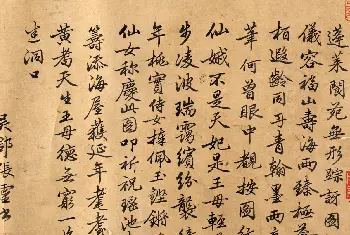 蓬莱閬苑無形踪訪圖
儀容福山壽海西臻極
栢遐齡同丹青翰墨兩
華何曽眼中觀按圖
仙娥不是天妃是王母輕
步凌波瑞靄繽紛襲
年桃實侍女捧佩玉鏗鏘
仙女称慶此圖叩祈祝瑤池
籌添海屋蘐延年耄耋
黄耇天生王母德無窮一
生洞口
吴郡張靈